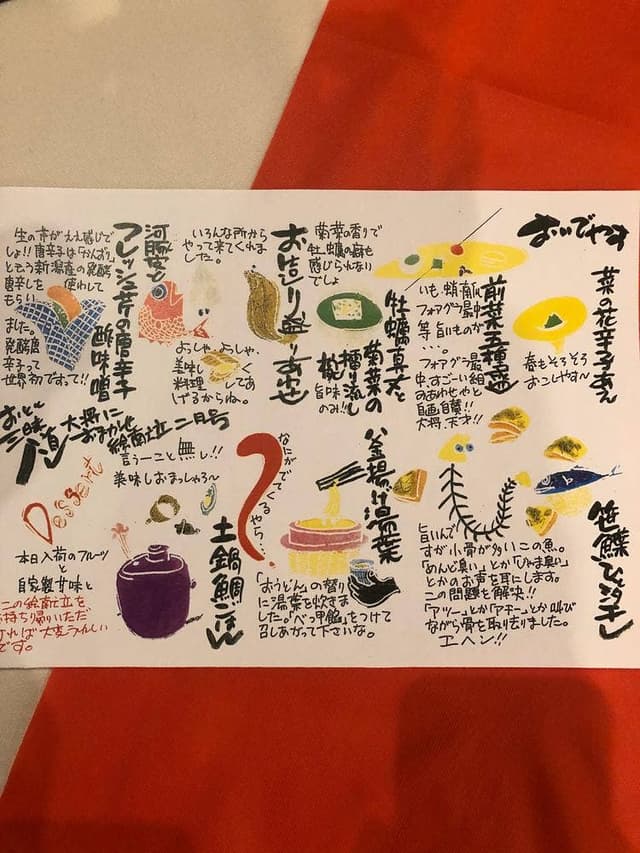 おいでやす
菜の花辛子あえ
春もそろそろ
おこしやす〜
前菜五種盛
いも、蛸、南瓜
フォアグラ最中
等旨いものが
・・・。
フォアグラ最
中、すごい組
のあわせやと
自画自賛!!
大将、天才!!
牡蠣真丈と
菊菜の
擂り流し
椀
旨味
のみ!!
菊菜の香りで
牡蠣の癖も
感じられない
でしょ
お造り盛り合わせ
いろんな所から
やって来てくれま
した。
よっしゃ、よっしゃ、
美味しく
料理してあ
げるからね。
河豚皮と
フレッシュ芹の唐辛子
酢味噌
生の芹がええ感じで
しょ!!唐辛子は「かんずり」
と言う新潟産の発酵
唐辛しを使わして
もらい
ました。
発酵唐
辛子って
世界初ですって!!
笹鰈ひとくちカツ
旨いんで
すが小骨が多いこの魚。
「めんど臭い」とか「じゃま臭い」
とかのお声を耳にします。
この問題を解決!!
「アツー」とか「アチー」とか叫び
ながら骨を取り去りました。
エヘン!!
釜揚げ湯葉
「おうどん」の替り
に湯葉を炊きま
した。「べっ甲餡」をつけて
召しあがって下さいな。
なにがでてくるやら・・・
?
土鍋鯛ごはん
言うこと無し!!
美味しおまっしゃろ〜
大将に
おまかせ
絵献立 二月号
Dessert
本日入荷のフルーツ
と
自家製甘味と
この絵献立を
お持ち帰りいただ
ければ大変うれしい
です。